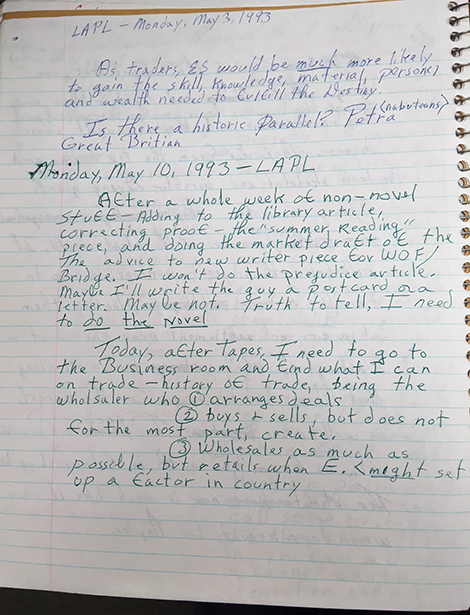 LAPL - Monday, May 3, 1993
As traders, ES would be much more likely
to gain the skill, knowledge, material, personel
and wealth needed to fulfill the Destiny.
<nabateans>
Is there a historic parallel? Petra
Great Britian
Monday, May 10, 1993 - LAPL
After a whole week of non-novel
stuff - Adding to the library article,
correcting proof - the "summer Reading"
piece, and doing the market draft of the
The advice to new writer piece for WOF/
Bridge. I won't do the prejudice article.
Maybe I'll write the guy a postcard or a
letter. Maybe not. Truth to tell, I need
to do the Novel
Today, after Tapes, I need to go to
the Business room and find what I can
on trade - history of trade, being the
wholsaler who ① arranges deals
② buys + sells, but does not
for the most part, create.
③ Wholesales as much as
possible, but retails when E. <might set
up a factor in country